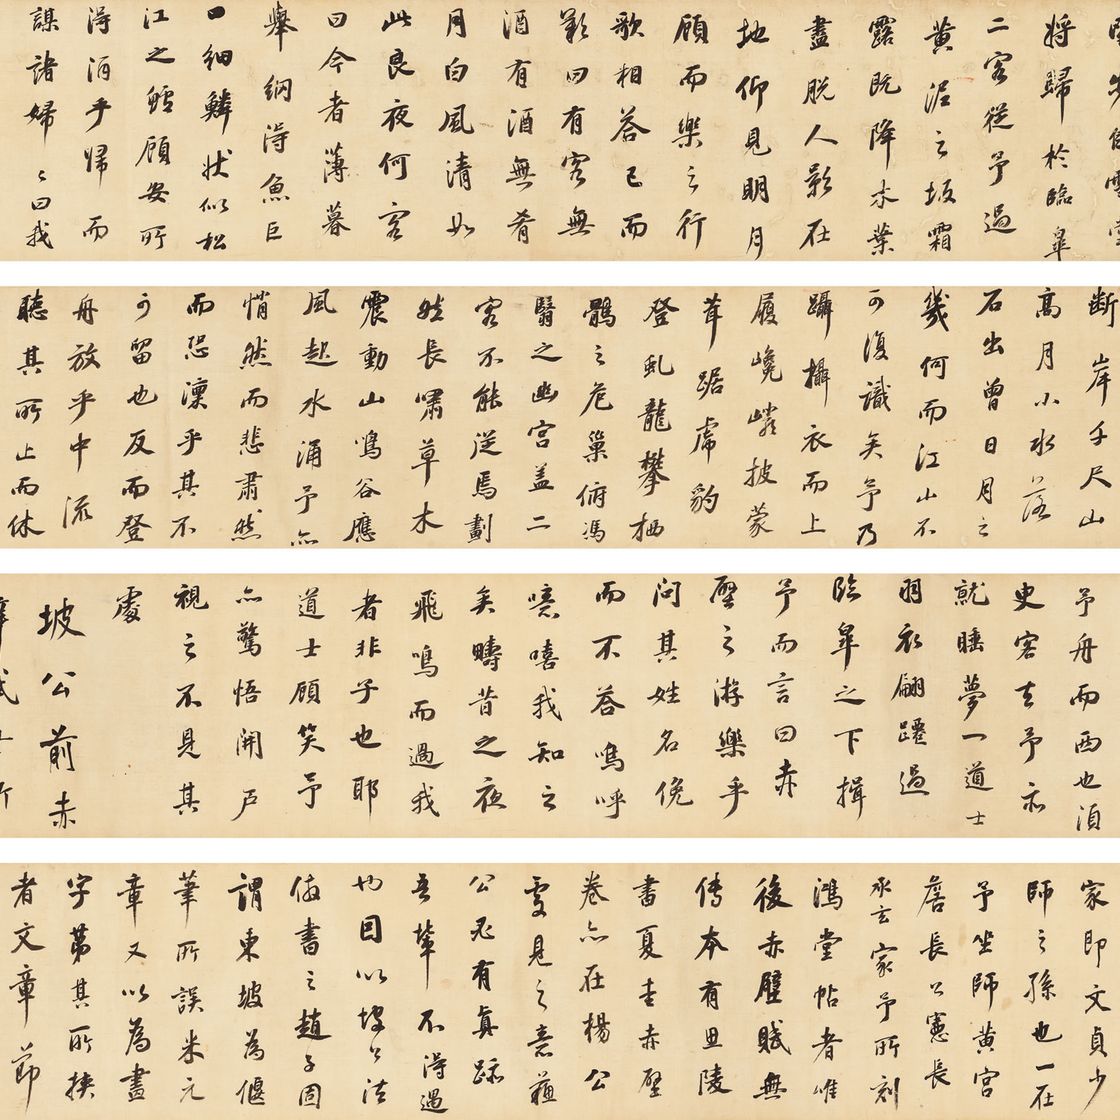 將歸於臨皋
二客從予過
黃泥之坂霜
露既降木葉
盡脫人影在
地仰見明月
顧而樂之行
歌相答已而
歎曰有客無
酒有酒無肴
月白風清如
此良夜何客
曰今者薄暮
舉網得魚巨
口細鱗狀似松
江之鱸顧安所
得酒乎歸而
謀諸婦〻曰我
斷岸千尺山
高月小水落
石出曾日月之
幾何而江山不
可復識矣予乃
躡攝衣而上
履巉巖披蒙
茸踞虎豹
登虬龍攀栖
鶻之危巢俯馮
翳之幽宮蓋二
客不能從焉劃
然長嘯草木
震動山鳴谷應
風起水涌予亦
悄然而悲肅然
而恐凜乎其不
可留也反而登
舟放乎中流
聽其所止而休
予舟而西也須
臾客去予亦
就睡夢一道士
羽衣翩躚過
臨皋之下揖
予而言曰赤
壁之游樂乎
問其姓名俛
而不答嗚呼
噫嘻我知之
矣疇昔之夜
飛鳴而過我
者非子也耶
道士顧笑予
亦驚悟開戶
視之不見其
處
坡公前赤
家即文貞少
師之孫也一在
予坐師黃宮
詹長公憲長
承玄家予所刻
鴻堂帖者唯
後赤壁賦無
傳本有思陵
書夏圭赤壁
卷亦在楊公
處見之意蘓
公必有真跡
吾輩不得過
也因以坡公法
倣書之趙子固
謂東坡為偃
筆所誤米元
章又以為畫
字第其所挾
者文章節